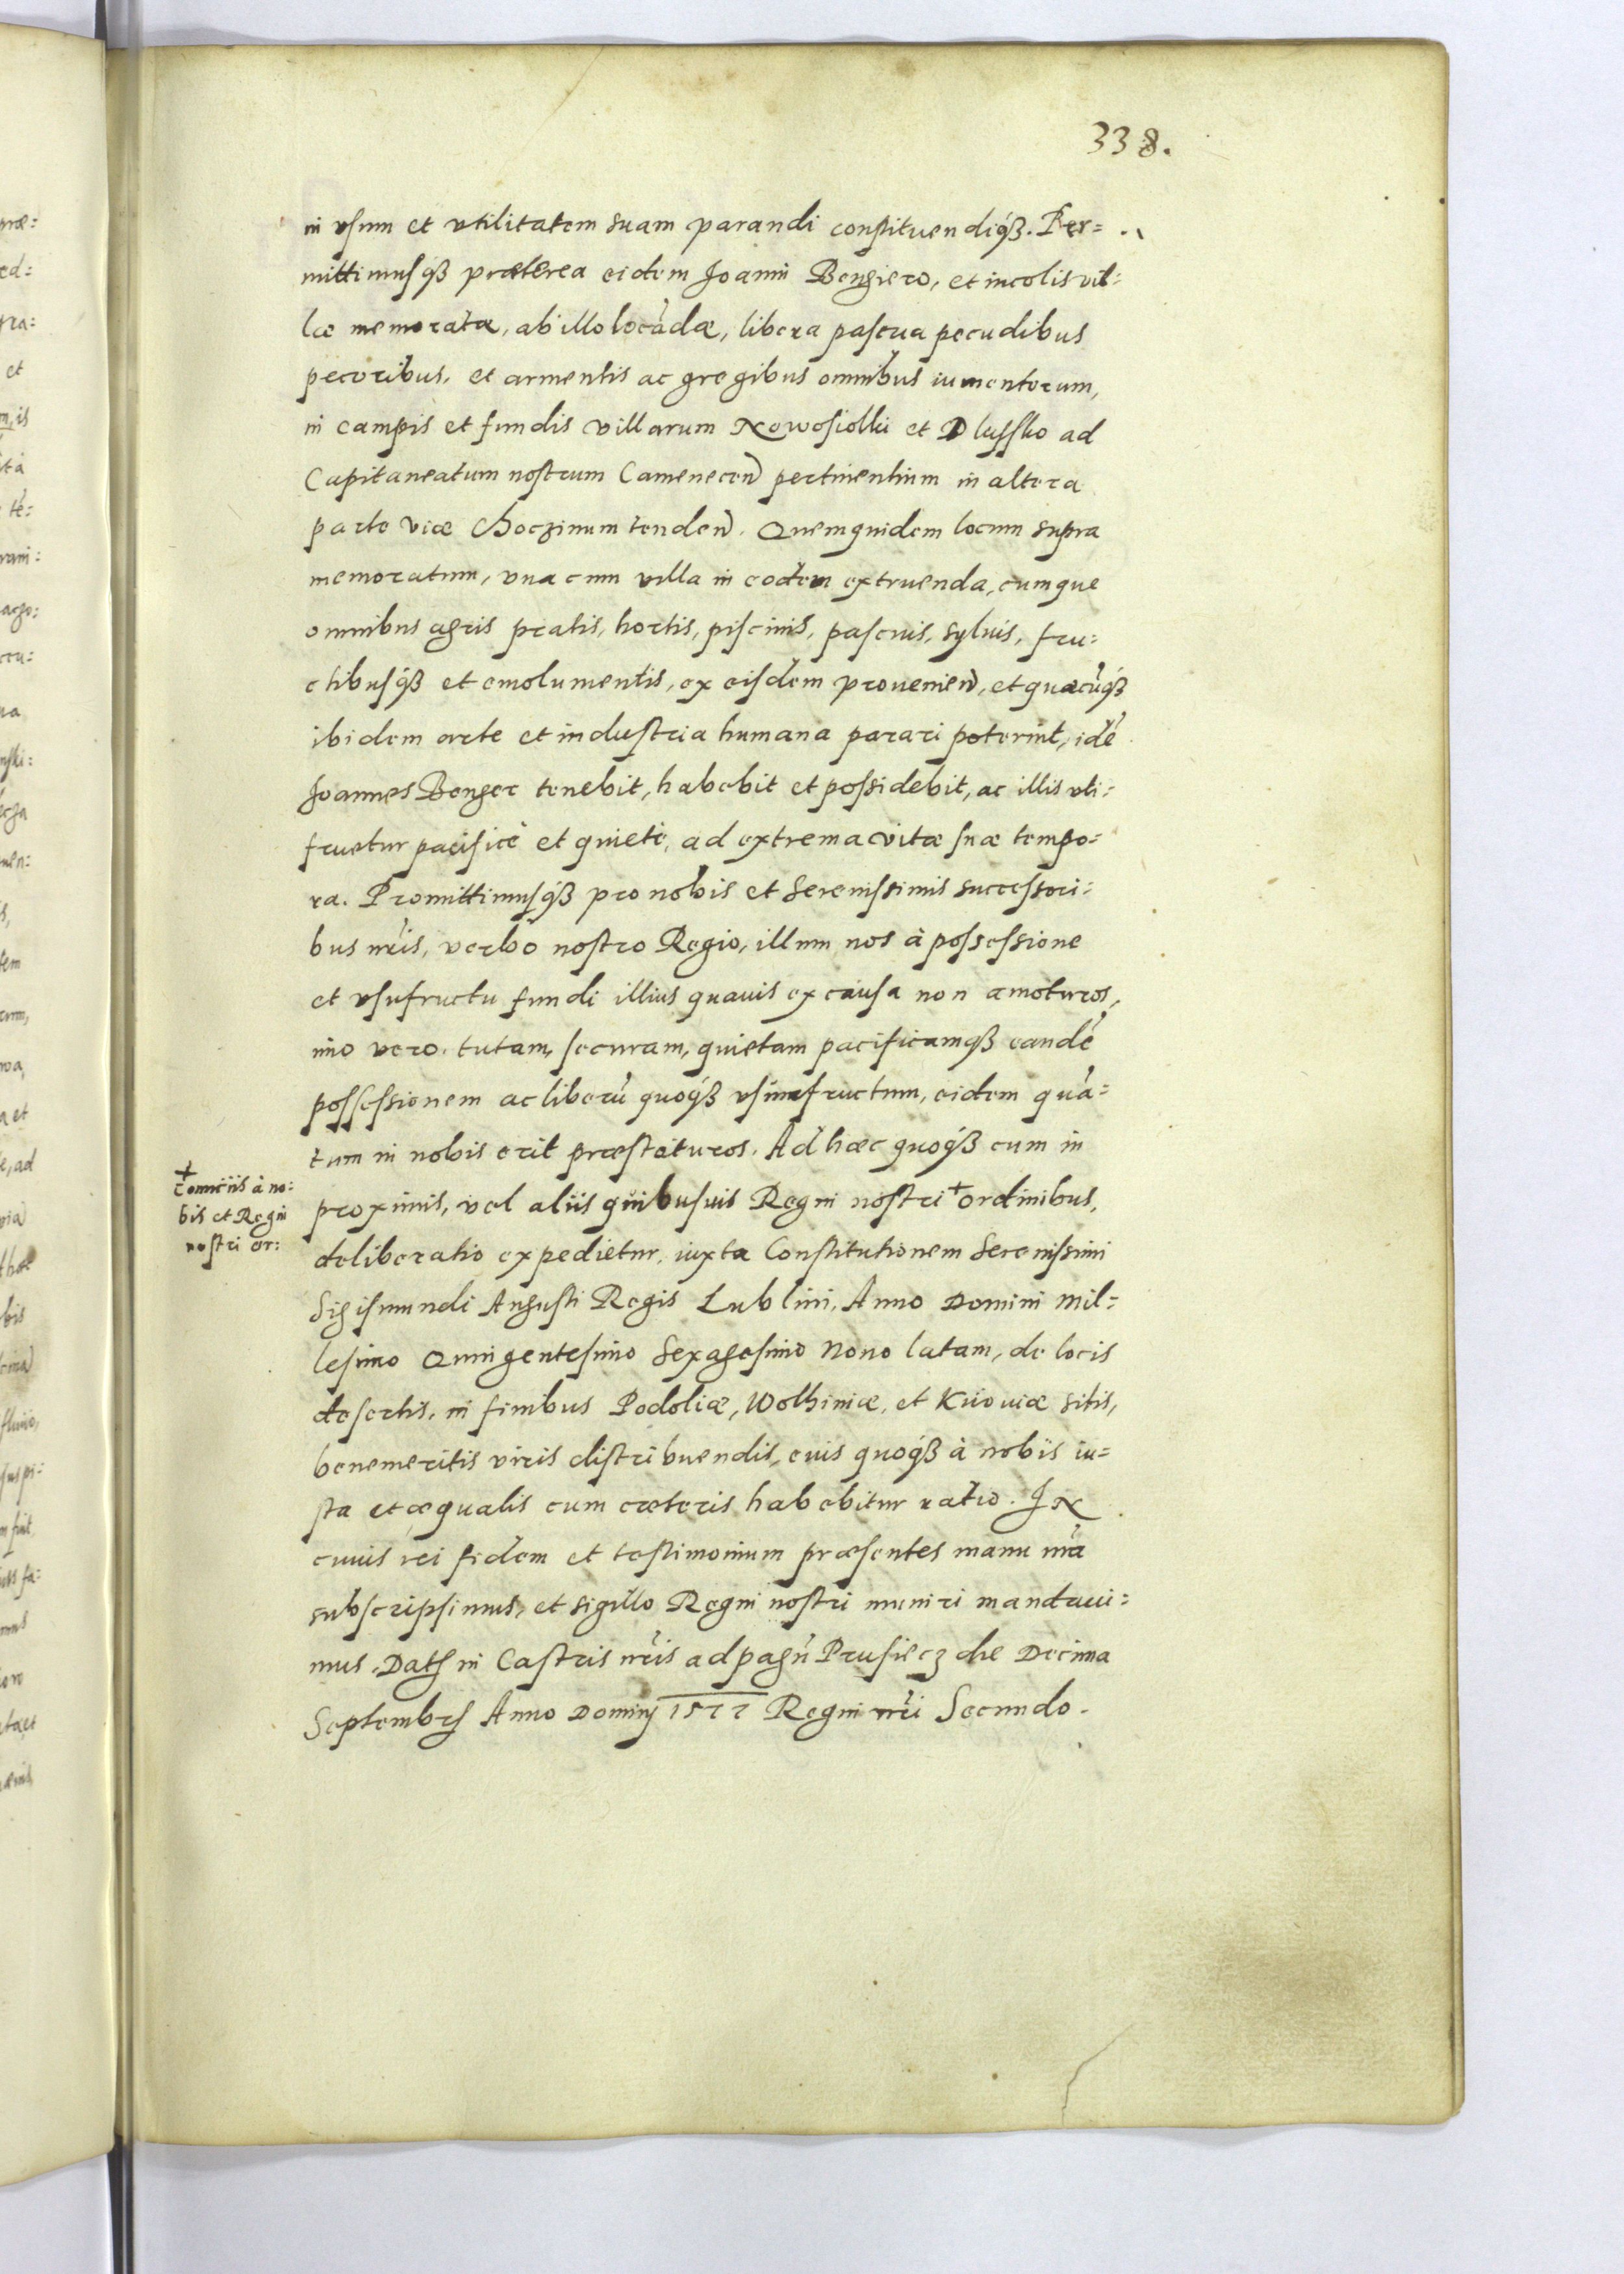 338.
in vsum et vtilitatem suam parandi constituendiq́ꝫ. Per=
mittimusq́ꝫ præterea eidem Joanni Bengiero, et incolis vil=
læ memoratæ, ab illo locãdæ, libera pascua pecudibus
pecoribus, et armentis ac gregibus omnibus iumentorum,
in campis et fundis villarum Nowosiolki et Dlussko ad
Capitaneatum nostrum Camenecen̄ pertinentium in altera
parte viæ Choczimum tenden̄. Quemquidem locum supra
memoratum, vna cum villa in eodem extruenda, cumque
omnibus agris pratis, hortis, piscinis, pascuis, syluis, fru=
ctibusq́ꝫ et emolumentis, ex eisdem prouenien̄, et quæcũq́ꝫ
ibidem arte et industria humana parari poterint, idẽ
Joannes Benger tenebit, habebit et possidebit, ac illis vti=
fruetur pacificè et quietè, ad extrema vitæ suæ tempo=
ra. Promittimusq́ꝫ pro nobis et Serenissimis successori=
bus nr̃is, verbo nostro Regio, illum nos à possessione
et vsufructu fundi illius quauis ex causa non amoturos,
imo vero tutam, securam, quietam pacificamq́ꝫ eandẽ
possessionem ac liberũ quoq́ꝫ vsumfructum, eidem quã=
tum in nobis erit præstituros. Ad hæc quoq́ꝫ cum in
proximis, vel aliis quibusuis Regni nostri + ordinibus,
+
comiciis à no=
bis et Regni
nostri or:
deliberatio expedietur, iuxta Constitutionem Serenissimi
Sigismundi Augusti Regis Lublini, Anno Domini mil=
lesimo Quingentesimo Sexagesimo Nono latam, de locis
desertis, in finibus Podoliæ, Wolhiniæ, et Kiiouiæ sitis,
benemeritis viris distribuendis, euis quoq́ꝫ à nobis iu=
sta et æqualis cum cæteris habebitur ratio. IN
cuius rei fidem et testimonium præsentes manu nr̃a
subscripsimus, et sigillo Regni nostri muniri mandaui=
mus. Datꝭ in Castris nr̃is ad pagũ Prusiecz die Decima
Septembrꝭ Anno Dominj 1577 Regni nr̃i Secundo.